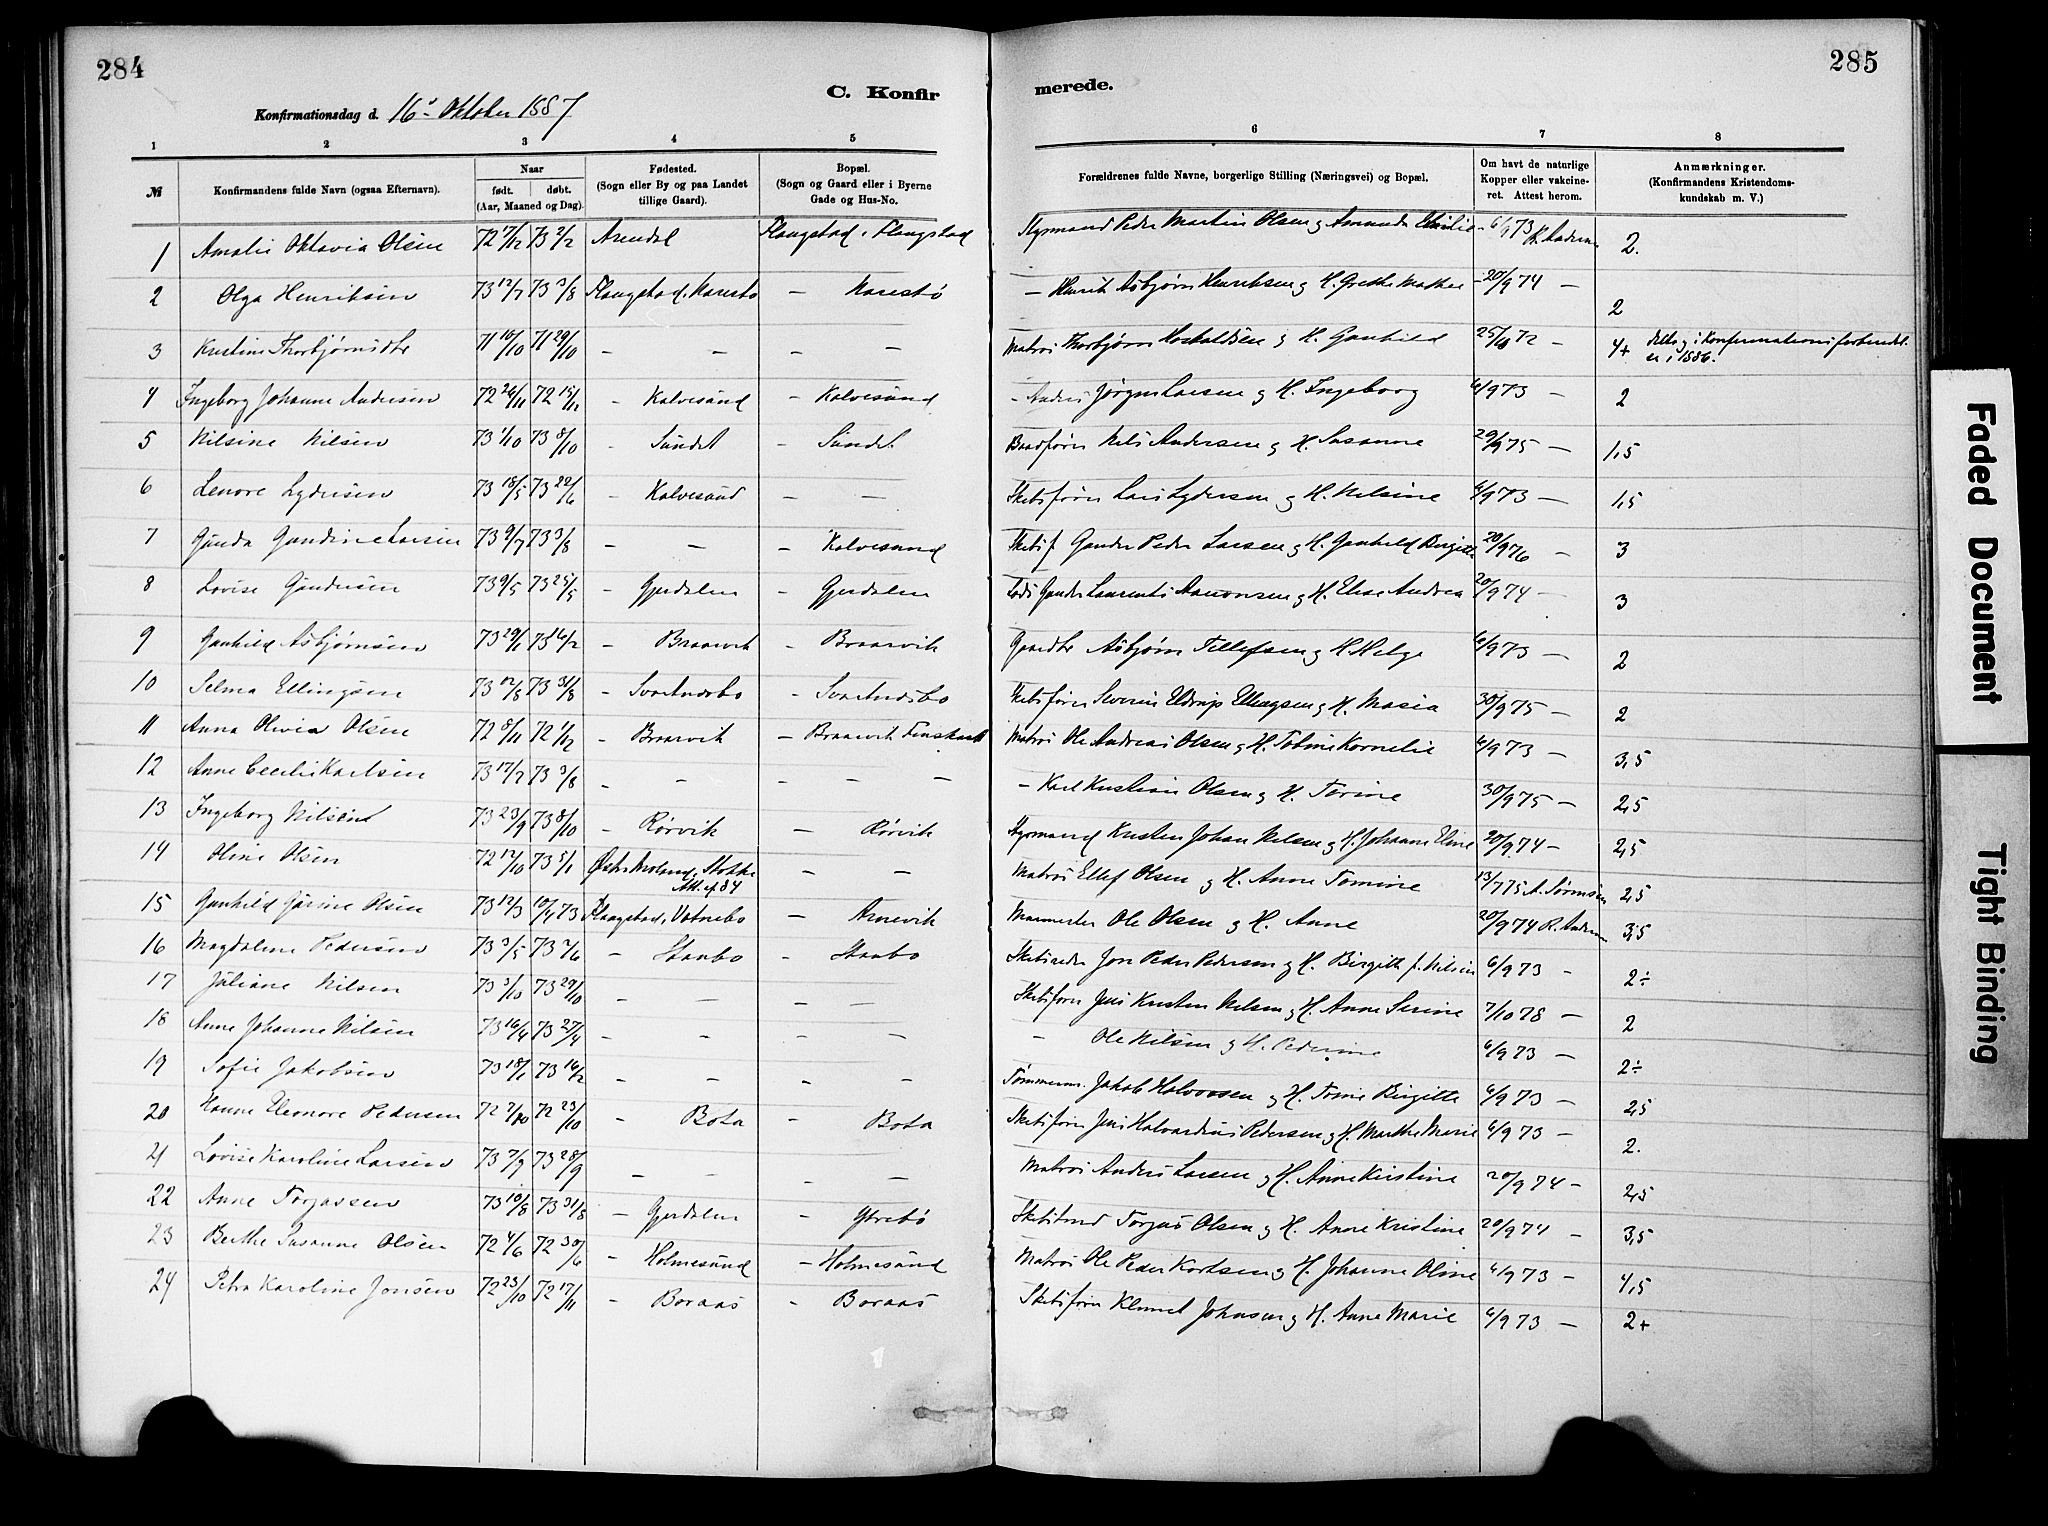 284
285
C. Konfir
merede.
Konfirmationsdag d. 16' Oktober 1887
1 2 3 4 5 6 7 8
№
Konfirmandens fulde Navn (ogsaa Efternavn).
Naar
født. døbt.
(Aar, Maaned og Dag).
Fødested.
(Sogn eller By og paa Landet
tillige Gaard).
Bopæl.
(Sogn og Gaard eller i Byerne
Gade og Hus-No.
Forældrenes fulde Navne, borgerlige Stilling (Næringsvei) og Bopæl.
Om havt de naturlige
Kopper eller vakcine-
ret. Attest herom.
Anmærkninger.
(Konfirmandens Kristendoms-
kundskab m. V.)
1 Amalie Oktavia Olsen 72 7/12 73 2/2 Arendal Flaugstad, Flaugstad Styrmand Peder Martin Olsen og Amanda Emilie 6/9 73 2.
2 Olga Henriksen 73 12/7 73 3/8 Flaugstad, Narestø — Narestø — Henrik Asbjørn Henriksen og H. Grethe Mathea 20/9 74 — 2
3 Kristine Thorbjørnsdtr 71 10/10 71 29/10 — — — — Matros Thorbjørn Hoskoldsen og H. Gunhild 25/10 72 — 4+ deltog i Konfirmationsforberedel-
se i 1886.
4 Ingeborg Johanne Andersen 72 26/11 72 15/12 — Kalvesund — Kalvesund — Anders Jørgen Larsen og H. Ingeborg 6/9 73 — 2
5 Nilsine Nilsen 73 1/10 73 8/10 — Sundet — Sundet Baadfører Nils Andersen og H. Susanne 29/9 75 — 1,5
6 Lenore Lydersen 73 18/5 73 22/6 — Kalvesund — — Skibsfører Lars Lydersen og H. Nilsine 6/9 73 — 1,5
7 Gunda Gundine Larsen 73 9/7 73 3/8 — — — Kalvesund Skibsf Gunder Peder Larsen og H. Gunhild Birgitte 20/9 76 — 3
8 Lovise Gundersen 73 9/5 73 25/5 — Gjerdalen — Gjerdalen Lods Gunder Laurents Aanonsen og H. Elise Andrea 20/9 74 — 3
9 Gunhild Asbjørnsen 73 29/1 73 16/2 — Braarvik — Braarvik Gaardbr Asbjørn Tellefsen og H. Helge 6/9 73 — 2
10 Selma Ellingsen 73 12/8 73 31/8 — Svartindsbo — Svartindsbo Skibsfører Severin Eldrup Ellingsen og H. Maria 30/9 75 — 2
11 Anna Olivia Olsen 72 8/11 72 1/12 — Braarvik — Braarvik Matros Ole Andreas Olsen og H. Tobine Kornelie 6/9 73 — 3,5
12 Anne Cecilie Karlsen 73 17/7 73 3/8 — — — — — Karl Kristian Olsen og H. Torine 30/9 75 — 2,5
13 Ingeborg Nilsen 73 23/9 73 8/10 — Rørvik — Rørvik Styrmand Kristen Johan Nilsen og H. Johanne Eline 20/9 74 — 2,5
14 Oline Olsen 72 12/10 73 5/1 Østre Moland, Stokke — — Matros Ellef Olsen og H. Anne Tomine 13/7 75 A. Sørensen 2,5
Att. ef. 84
15 Gunhild Jørine Olsen 73 12/3 10/4 73 Flaugstad, Vatnebo — Arnevik Murmester Ole Olsen og H. Anne 20/9 74 R. Andersen 3,5
16 Magdalene Pedersen 73 3/5 73 2/6 — Staubo — Staubo Skibsreder Jon Peder Pedersen og H. Birgitte f. Nilsen 6/9 73 — 2÷
17 Juliane Nilsen 73 3/10 73 29/10 — — — — Skibsfører Jens Kristen Nilsen og H. Anne Serine 7/10 78 — 2
18 Anne Johanne Nilsen 73 16/4 73 27/4 — — — — — Ole Nilsen og H. Pederine 6/9 73 — 2÷
19 Sofie Jakobsen 73 18/1 73 16/2 — — — — Tømmerm. Jakob Halvorsen og H. Tomine Birgitte 6/9 73 — 2,5
20 Hanne Eleonore Pedersen 72 2/10 72 23/10 — Bota — Bota Skibsfører Jens Halvardius Pedersen og H. Marthe Marie 6/9 73 — 2.
21 Lovise Karoline Larsen 73 7/9 73 28/9 — — — — Matros Anders Larsen og H. Anne Kirstine 20/9 74 — 2,5
22 Anne Torjussen 73 10/8 73 31/8 — Gjerdalen — Ytrebø Torjus Olsen og H. Anne Kristine 20/9 74 — 3,5
23 Berthe Susanne Olsen 72 4/6 72 30/6 — Holmesund — Holmesund Matros Ole Peder Karlsen og H. Johanne Oline 6/9 73 — 4,5
24 Petra Karoline Jonsen 72 23/10 72 17/11 — Boraas — Boraas Skibsfører Klemet Johnsen og H. Anne Marie 6/9 73 — 2+
Faded Document
Tight Binding